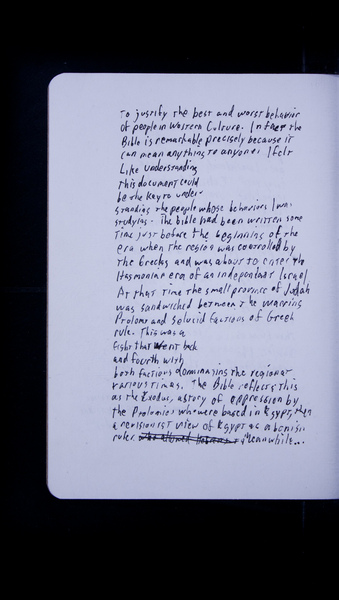 to justify the best and worst behavior
of people in Western Culture. In fact the
Bible is remarkable precisely because it
can mean anything to anyone. I felt
Like understanding
this document could
be the key to under
standing the people whose behaviors I was
studying. The Bible had been written some
time just before the beginning of the
era when the region was controlled by
the Greeks and was about to enter the
Hasmonine era of an independant Israel
At that time the small province of Judah
was sandwiched between the warring
Ptolomy and Selucid factions of Greek
rule. This was a
fight that went back
and fourth with
both factions dominating the region at
various times. The Bible reflects this
as the Exodus, a story of oppression by
the Ptolomies who were based in Egypt, then
a revisionist view of Egypt as a benign
ruler. Meanwhile...